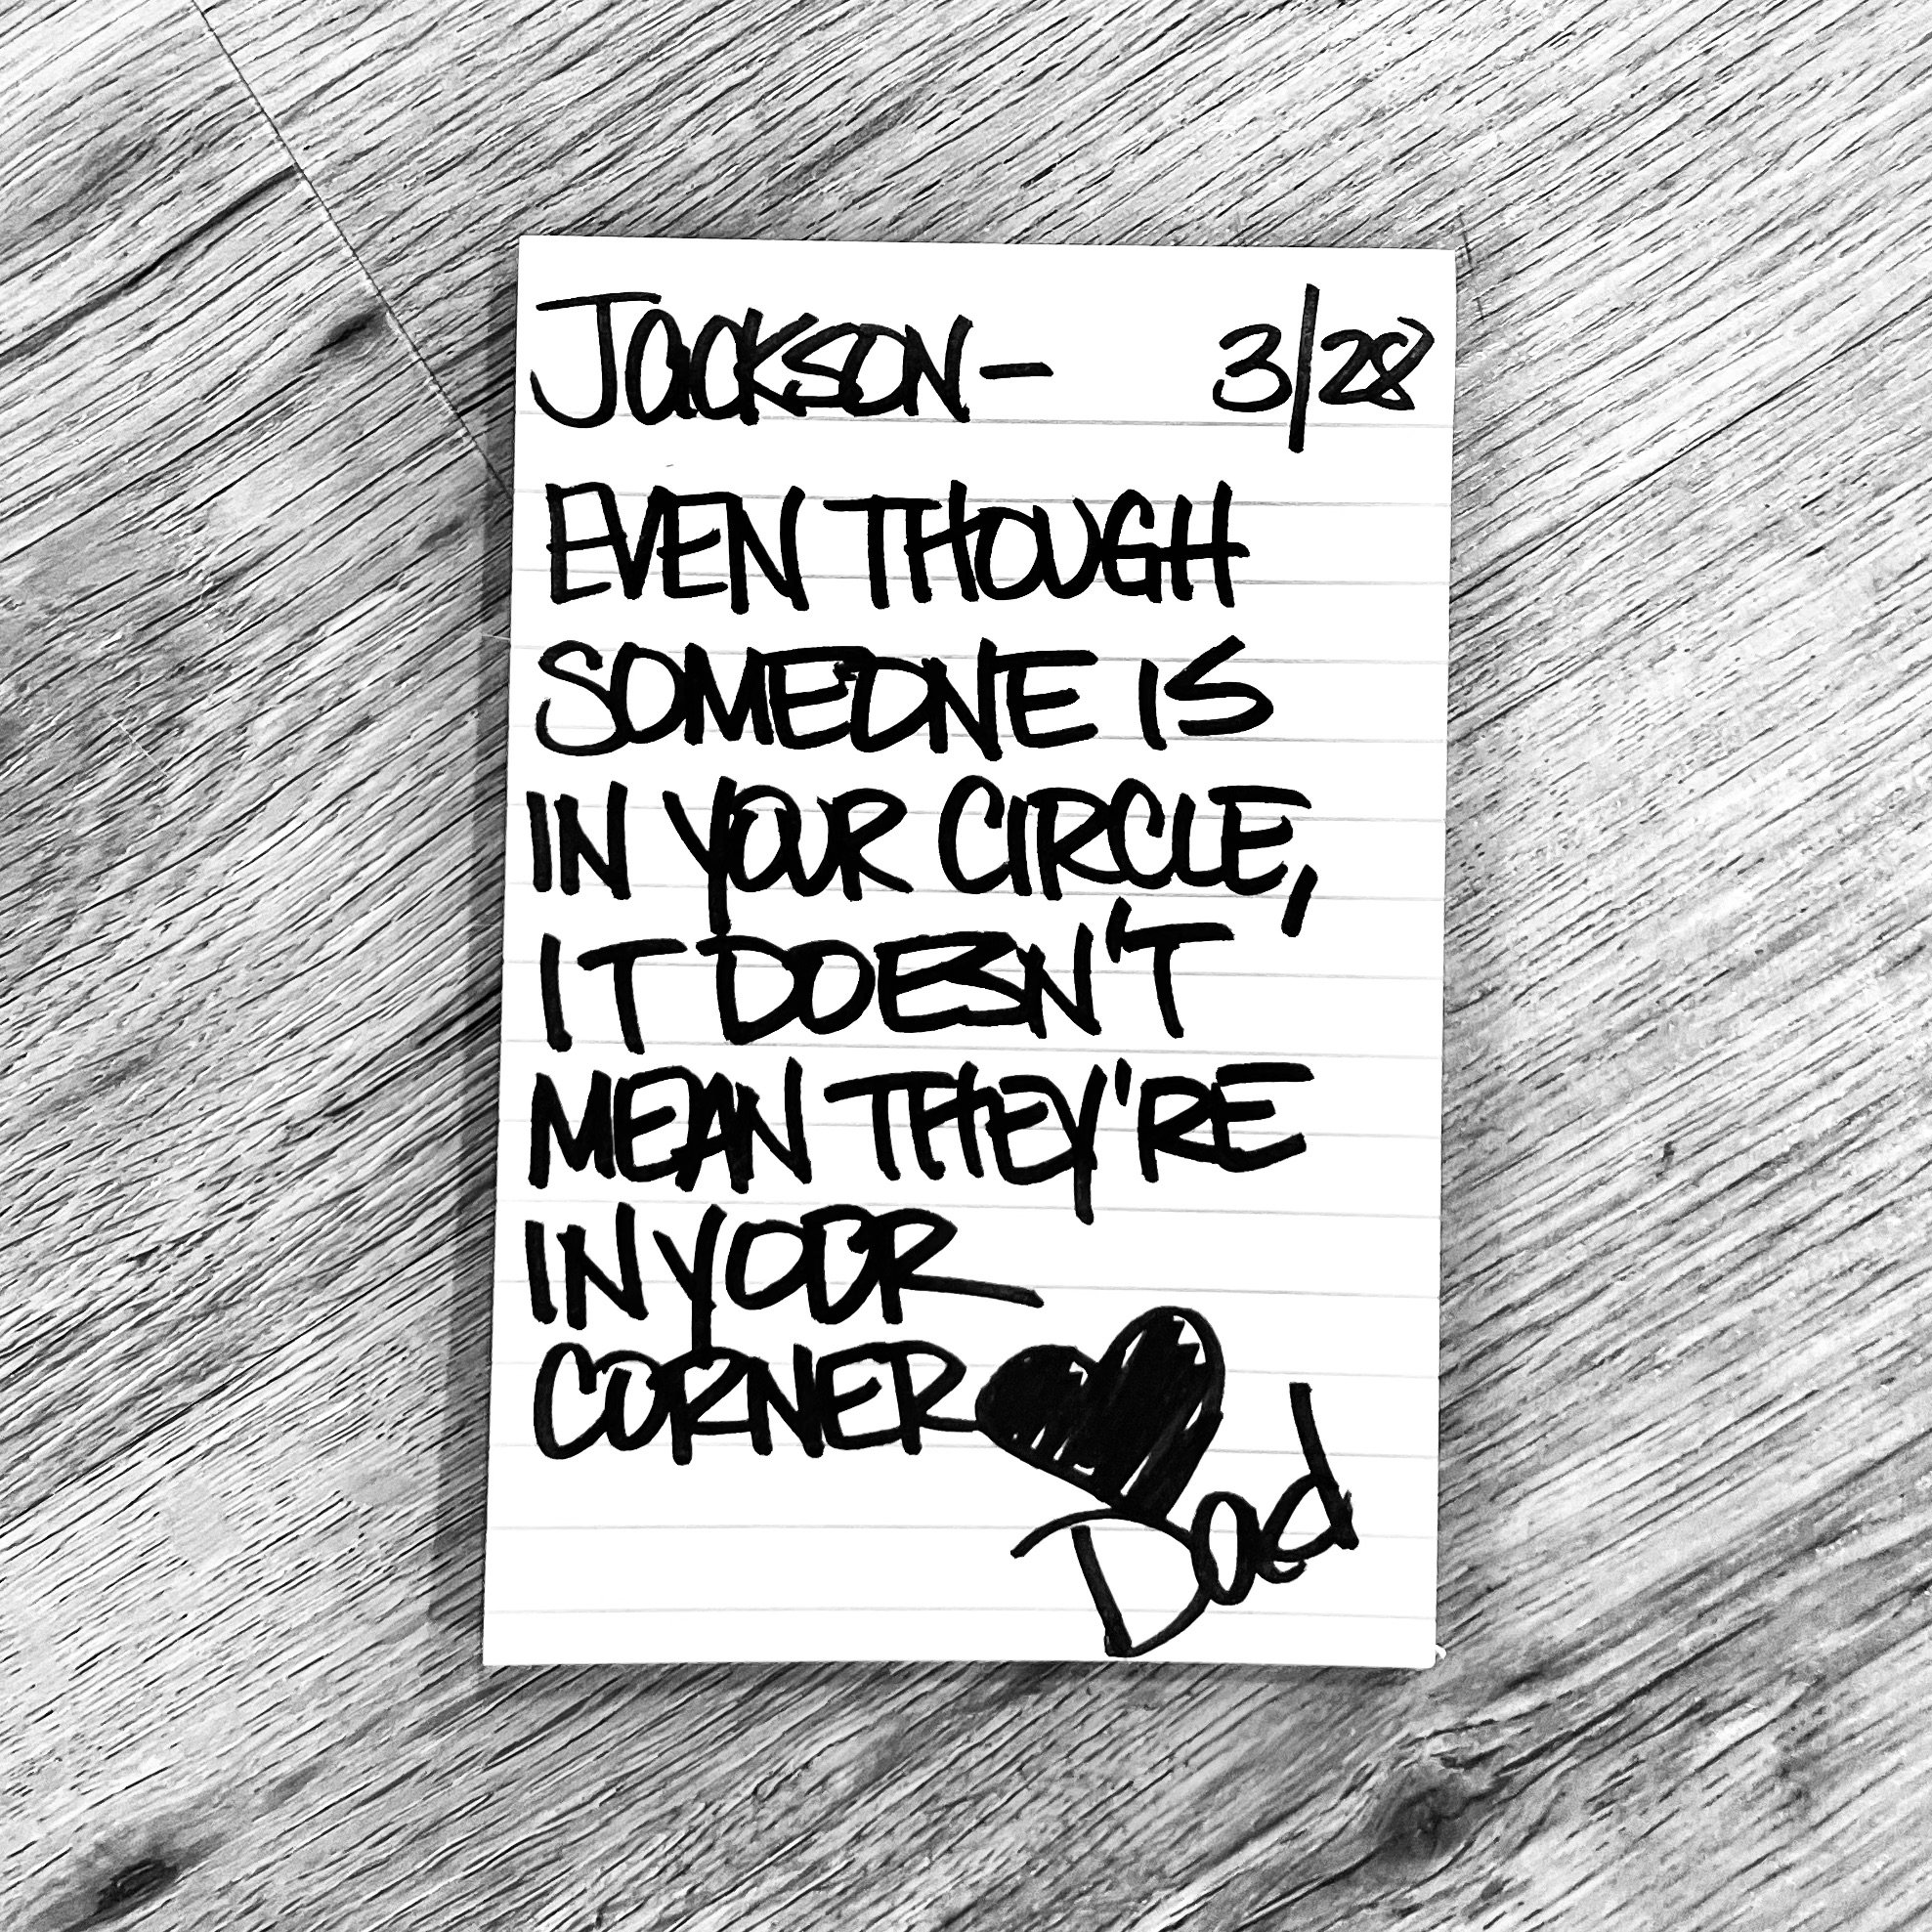 Jackson- 3/28
EVEN THOUGH
SOMEONE IS
IN YOUR CIRCLE,
IT DOESN'T
MEAN THEY'RE
IN YOUR
CORNER
Dad